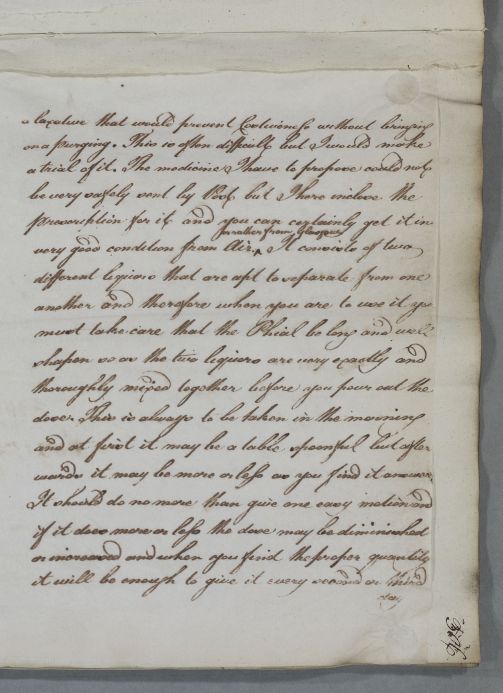 a laxative that would prevent Costiveness without bringing
on a purging. This is often difficult but I would make
a trial of it. The medicine I have to propose could not
be very safely sent by Post but I here inclose the
prescription for it and you can certainly get it in
or rather from Glasgow
very good condition from Air, It consists of two
different liquors that are apt to separate from one
another and therefore when you are to use it you
must take care that the Phial be long and well
shaken so as the two liquors are very exactly and
thoroughly mixed together before you pour out the
dose. This is always to be taken in the morning
and at first it may be a table spoonful but after
wards it may be more or less as you find it answer
It should do no more than give one easy motion and
if it does more or less the dose may be diminished
or increased and when you find the proper quantity
it will be enough to give it every second or third
day